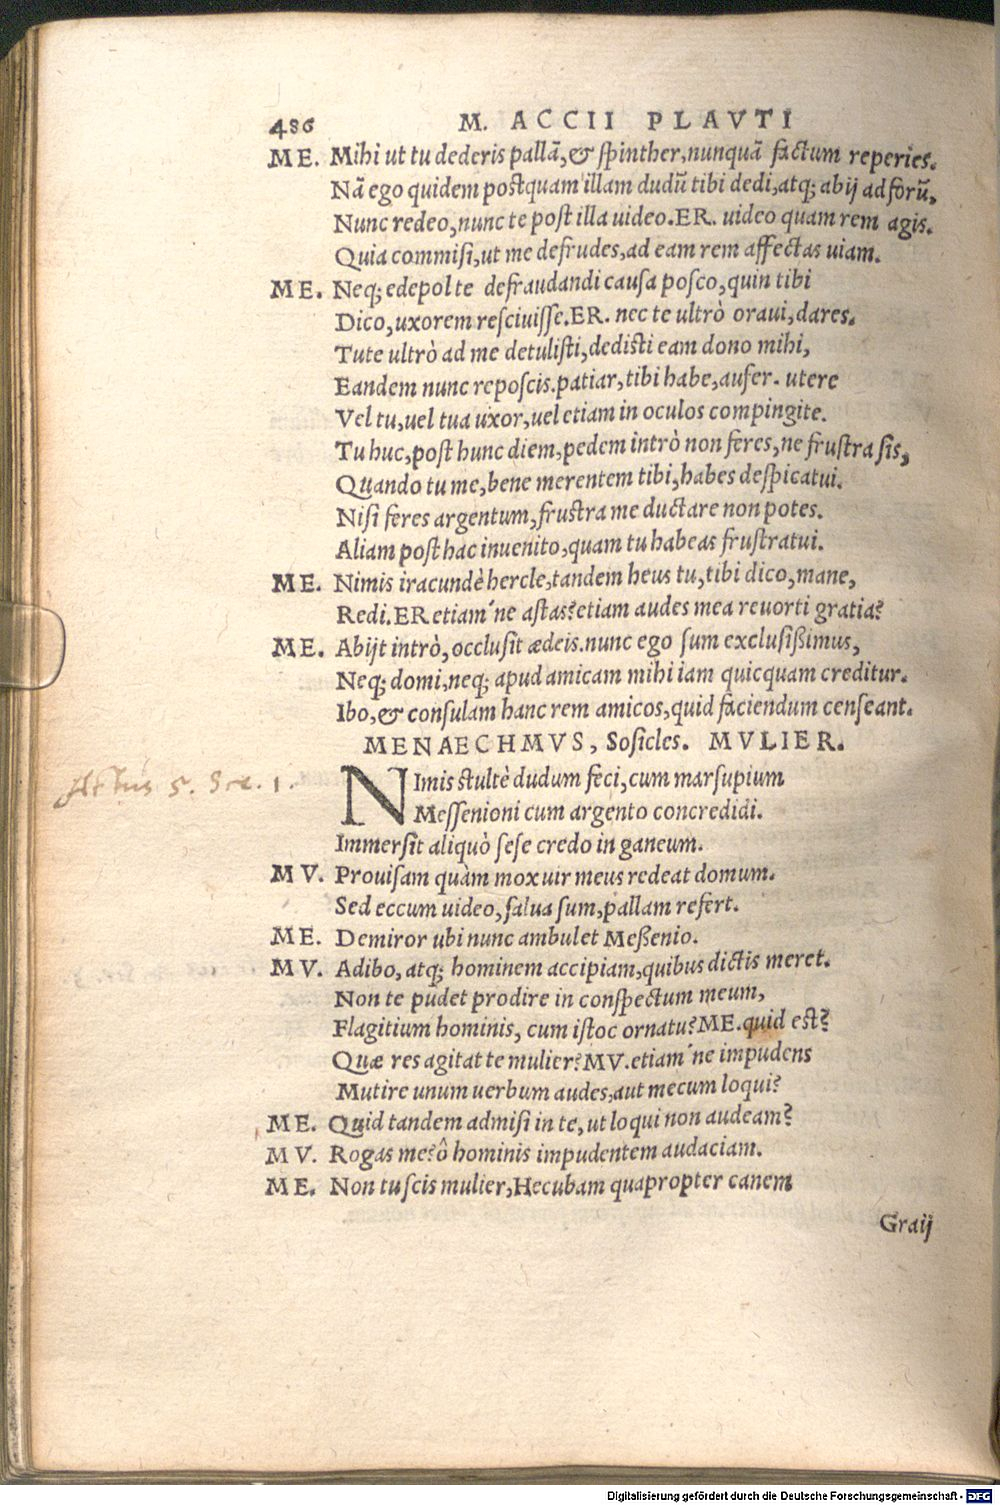 486 M. ACCII PLAVTI
ME. Mihi ut tu dederis pallā, & spinther, nunquā factum reperies.
Nā ego quidem postquam illam dudū tibi dedi, atq; abij ad forū,
Nunc redeo, nunc te post illa uideo. ER. uideo quam rem agis.
Quia commisi, ut me defrudes, ad eam rem affectas uiam.
ME. Neq; edepol te defraudandi causa posco, quin tibi
Dico, uxorem resciuisse. ER. nec te ultrò oraui, dares.
Tute ultrò ad me detulisti, dedisti eam dono mihi,
Eandem nunc reposcis. patiar, tibi habe, aufer. utere
Vel tu, uel tua uxor, uel etiam in oculos compingite.
Tu huc, post hunc diem, pedem intrò non feres, ne frustra sis,
Quando tu me, bene merentem tibi, habes despicatui.
Nisi feres argentum, frustra me ductare non potes.
Aliam post hac inuenito, quam tu habeas frustratui.
ME. Nimis iracundè hercle, tandem heus tu, tibi dico, mane,
Redi. ER etiam'ne astas? etiam audes mea reuorti gratia?
ME. Abijt intrò, occlusit ædeis. nunc ego sum exclusißimus,
Neq; domi, neq; apud amicam mihi iam quicquam creditur.
Ibo, & consulam hanc rem amicos, quid faciendum censeant.
MENAECHMVS, Sosicles. MVLIER.
Actus 5. Sce. 1.
Nimis stultè dudum feci, cum marsupium
Messenioni cum argento concredidi.
Immersit aliquò sese credo in ganeum.
MV. Prouisam quàm mox uir meus redeat domum.
Sed eccum uideo, salua sum, pallam refert.
ME. Demiror ubi nunc ambulet Meßenio.
MV. Adibo, atq; hominem accipiam, quibus dictis meret.
Non te pudet prodire in conspectum meum,
Flagitium hominis, cum istoc ornatu? ME. quid est?
Quæ res agitat te mulier? MV. etiam'ne impudens
Mutire unum uerbum audes, aut mecum loqui?
ME. Quid tandem admisi in te, ut loqui non audeam?
MV. Rogas me? ô hominis impudentem audaciam.
ME. Non tu scis mulier, Hecubam quapropter canem
Graij
Digitalisierung gefördert durch die Deutsche Forschungsgemeinschaft - DFG